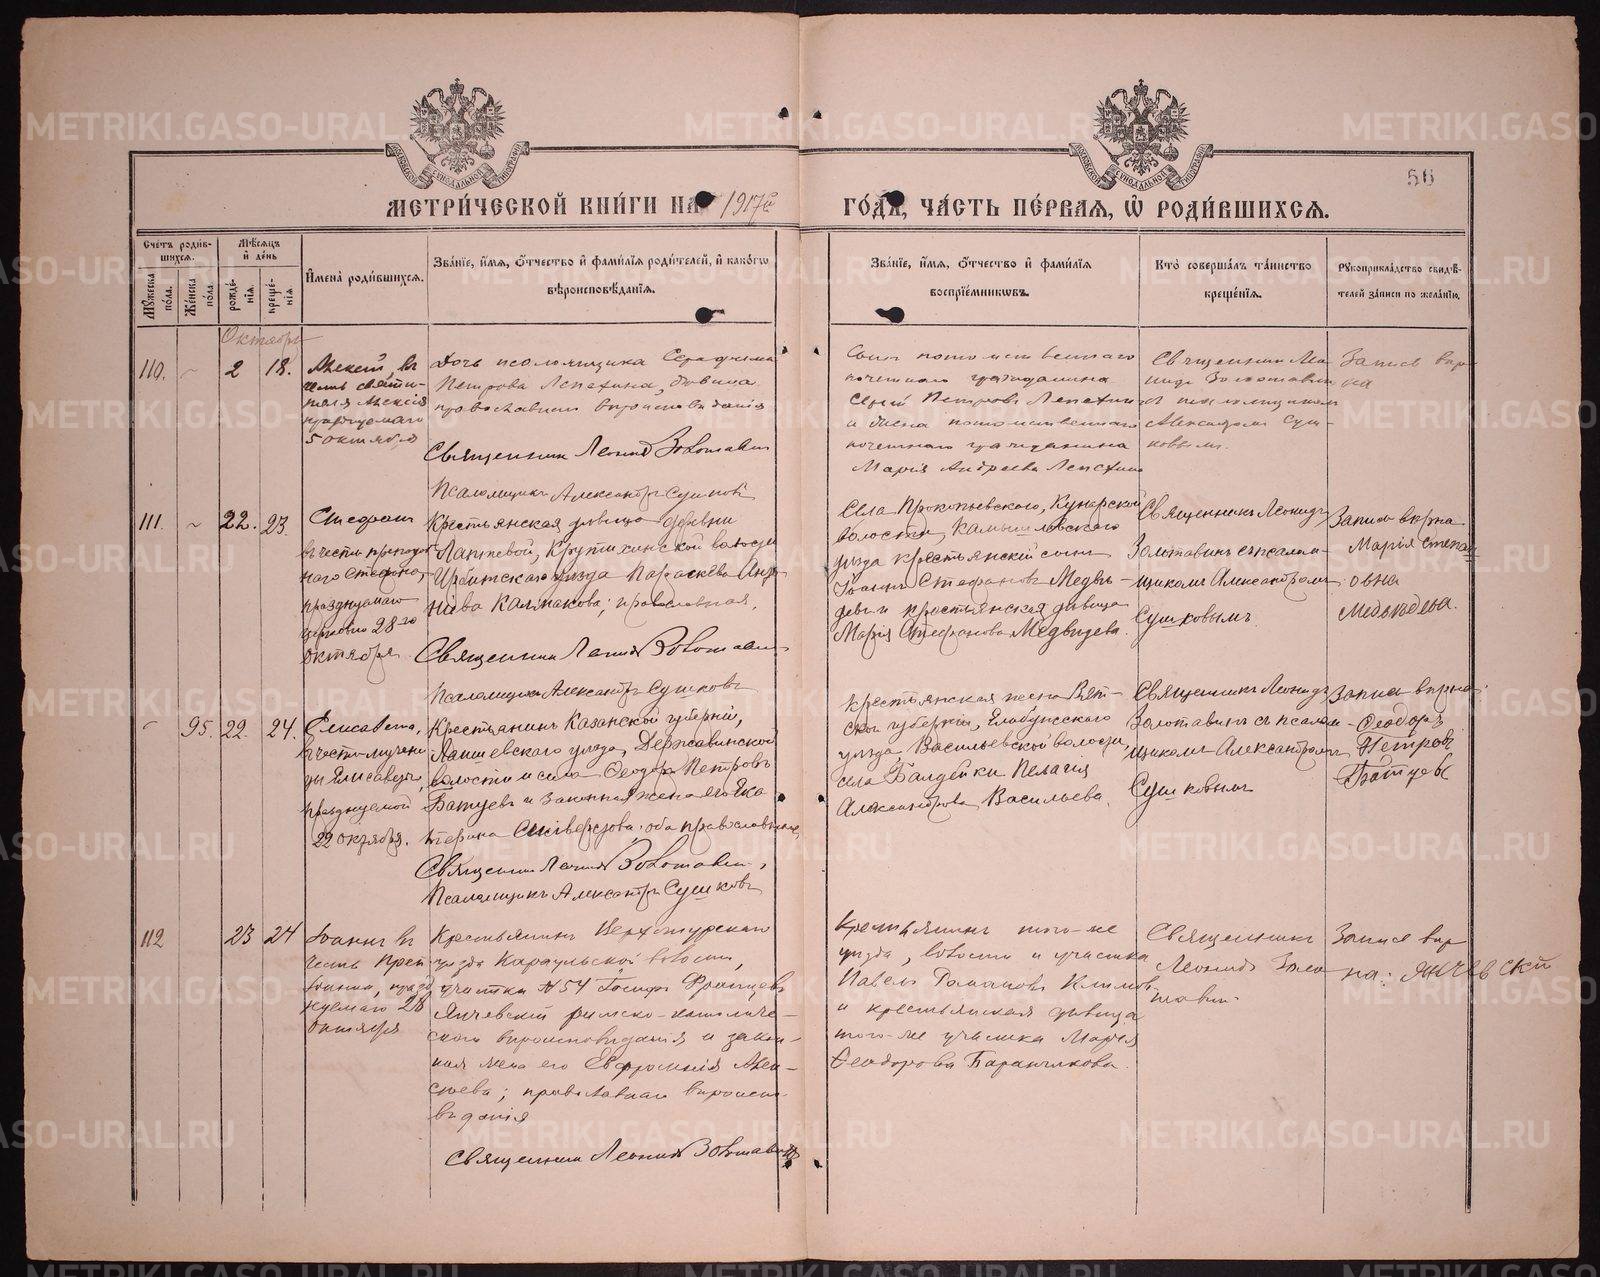 МЕТРИ́ЧЕСКОЙ КНИ́ГИ НА 1917й
ГО́ДЪ, ЧА́СТЬ ПЕ́РВАЯ, Ѡ РОДИ́ВШИХСЯ.
50
Сче́тъ роди́в-
шихся.
Мѣ́сяцъ
и҆ де́нь
Му́жеска по́ла.
Же́нска по́ла.
рожде́-
нїя.
креще́-
нїя.
И҆мена̀ роди́вшихся.
Зва́нїе, и҆́мя, о҆́тчество и҆ фами́лїя роди́телей, и҆ како́гѡ
вѣроисповѣ́данїя.
Зва́нїе, и҆́мя, о҆́тчество и҆ фами́лїя
воспрїе́мникѡвъ.
Кто̀ соверша́лъ та́инство
креще́нїя.
Рукоприкла́дство свидѣ́-
телей за́писи по жела́нїю.
Октябрь
110.
2
18.
Алексій, въ
честь святи-
теля Алексія
празднуемаго
5 октября
Дочь псаломщика Серафима
Петрова Лепехина, девица
православнаго вероисповедания
Священник Леонид Золотавин
Псаломщикъ Александръ Сушковъ
Сын потомственнаго
почетнаго гражданина
Сергій Петровъ Лепехин
и жена потомственнаго
почетнаго гражданина
Марія Андреева Лепехина
Священник Лео-
нид Золотавин
с псаломщиком
Александром Суш-
ковымъ.
Запись вер-
на
111.
22.
23.
Стефанъ
въ честь препод
наго Стефана,
празднуемаго
церковію 28го
октября.
Крестьянская девица деревни
Лаптевой, Крутихинской волости
Ирбитскаго уезда Параскева
Калмакова; православная.
Священник Леонид Золотавин
Псаломщикъ Александръ Сушковъ
Села Прокопьевского, Кунарской
волости, Камышловского
уезда крестьянский сынъ
Іоаннъ Стефановъ Медве-
девъ и крестьянская девица
Марія Стефанова Медведева.
Священникъ Леонидъ
Золотавинъ съ псалом-
щикомъ Александромъ
Сушковымъ
Запись верна
Марія Степан
овна
Медведева.
95.
22.
24.
Елисавета,
въ честь мучени
цы Елисаветы,
празднуемой
22 октября.
Крестьянинъ Казанской губерніи,
Лаишевского уезда, Державинской
волости и села Феодоръ Петровъ
Батуевъ и законная жена его Ека
терина Селиверстова, оба православные
Священник Леонид Золотавин,
Псаломщикъ Александръ Сушковъ
крестьянская жена Вят-
ской губерніи, Елабужсского
уезда, Васильевской волости,
села Балдейки Пелагія
Александрова Васильева.
Священникъ Леонидъ
Золотавинъ съ псалом
щикомъ Александромъ
Сушковымъ
Запись верна
Феодоръ
Петровъ
Батуевъ
112
23
24
Іоаннъ въ
честь преп
Іоанна, празд
нуемаго 28
октября
Крестьянинъ Верхотурскаго
уезда Караульской волости,
участка № 54 Іосифъ Францевъ
Янчевскій римско-католиче-
скаго вероисповеданія и закон-
ная жена его Евфросинія Алек-
сеева; православнаго вероиспо-
веданія
Священник Леонид Золотавин
Крестьянинъ того-же
уезда, волости и участка
Павелъ Романовъ Климов
и крестьянская девица
того-же участка Марія
Феодорова Баранчикова.
Священникъ
Леонидъ Золо
тавин
Запись вер
на: Янчевский
METRIKI.GASO-URAL.RU